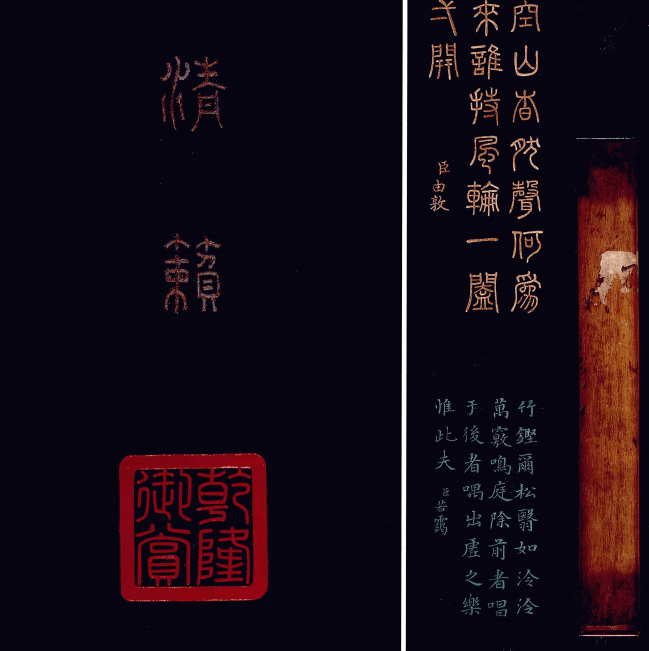 清籟
乾隆
御賞
空山杳然聲何爲
來誰持風輪一闔
弌開
臣由敦
竹鏗爾松翳如泠泠
萬竅鳴庭除前者唱
于後者喁出虛之樂
惟此夫
臣若靄